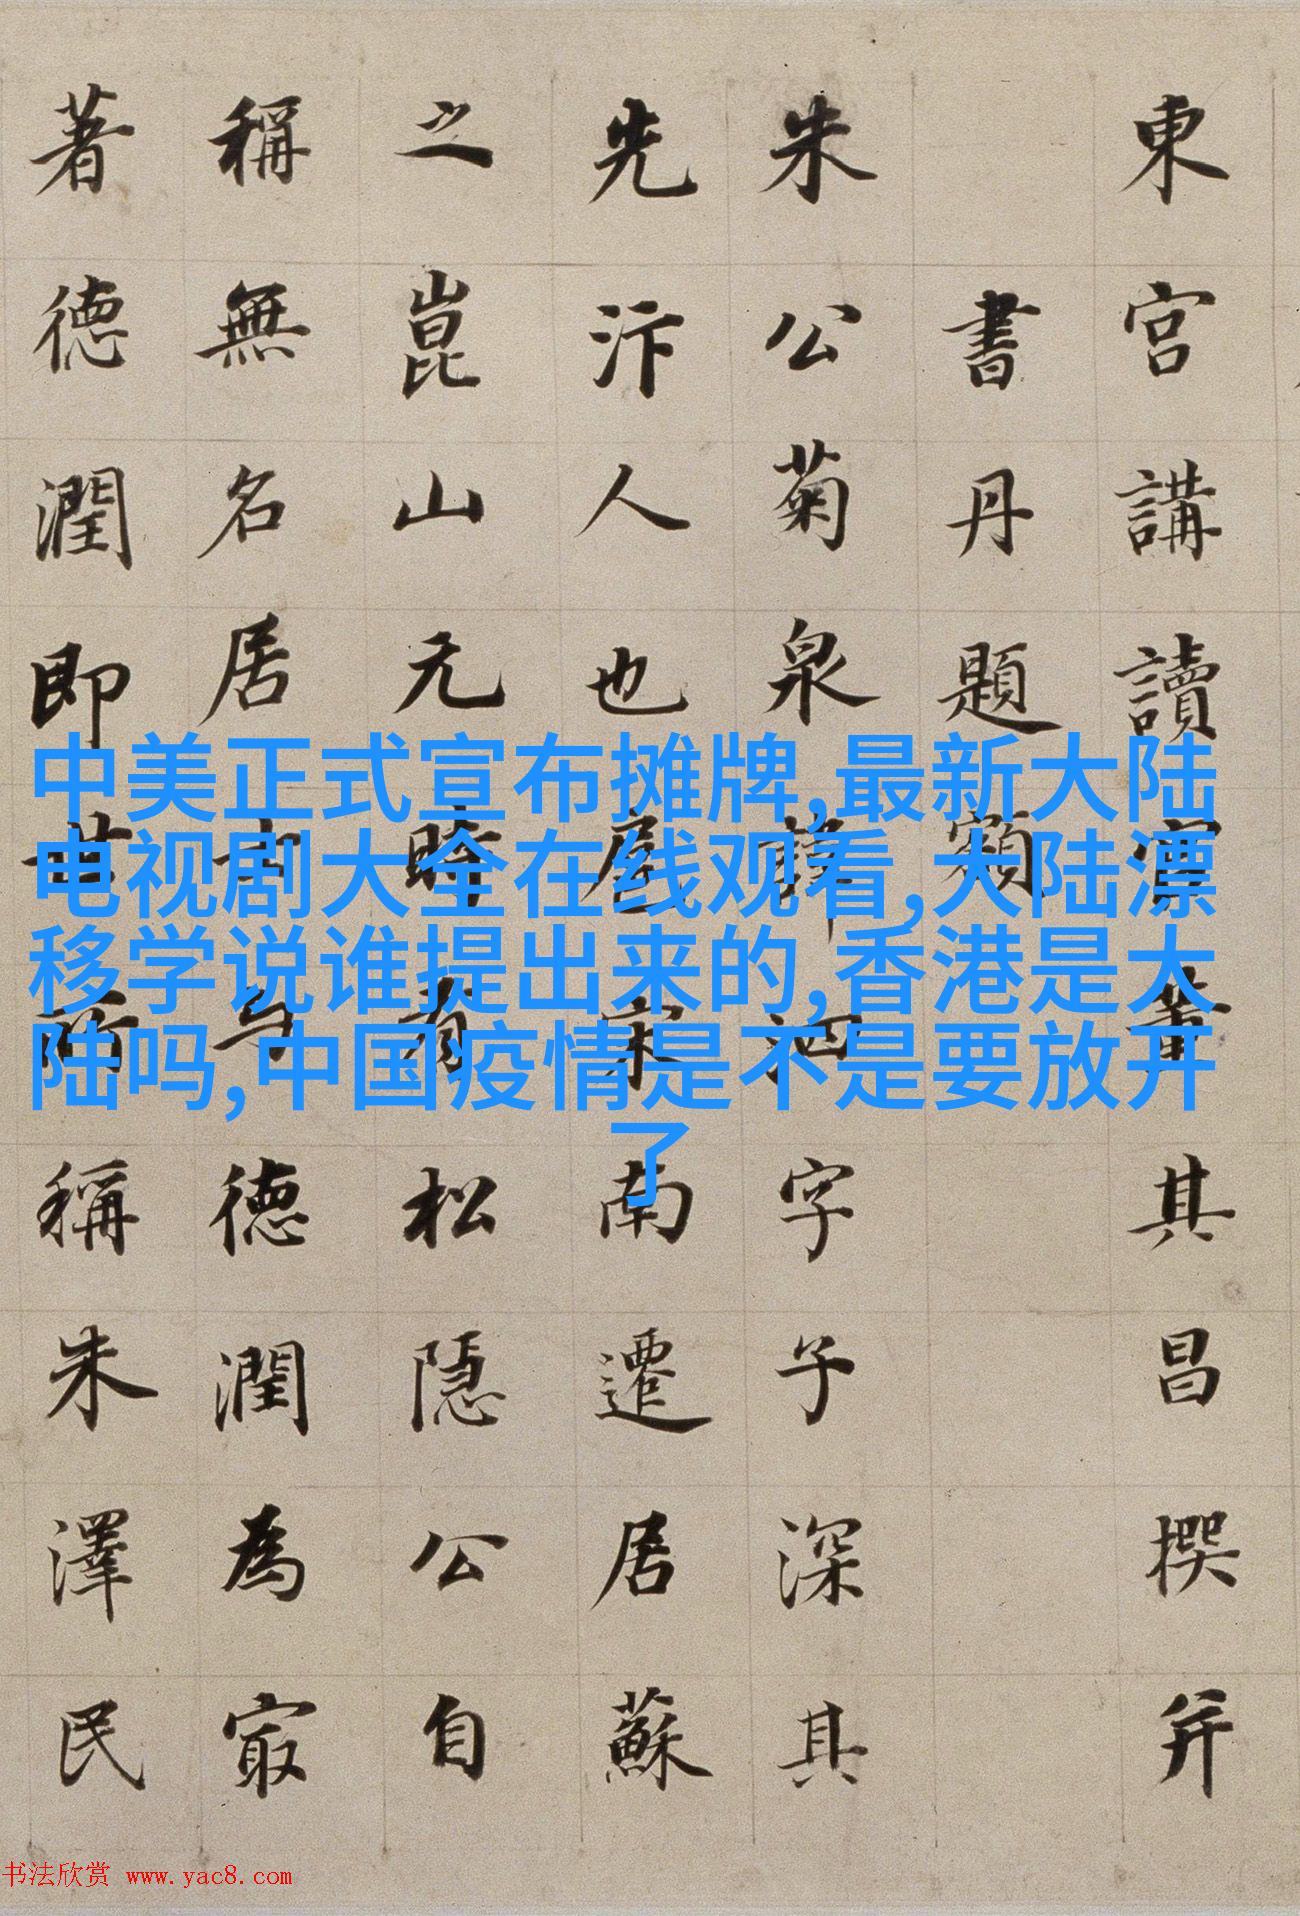 東宮講讀官董其昌撰并
書丹題額
朱公菊泉諱泗字子深其
先汴人也扈宋南遷居蘇
之崑山元時有松隱公自
稱無名居士与德潤為冣
著德潤即世所稱朱澤民
中美正式宣布摊牌,最新大陆
电视剧大全在线观看,大陆漂
移学说谁提出来的,香港是大
陆吗,中国疫情是不是要放开
了
书法欣赏 www.yac8.com